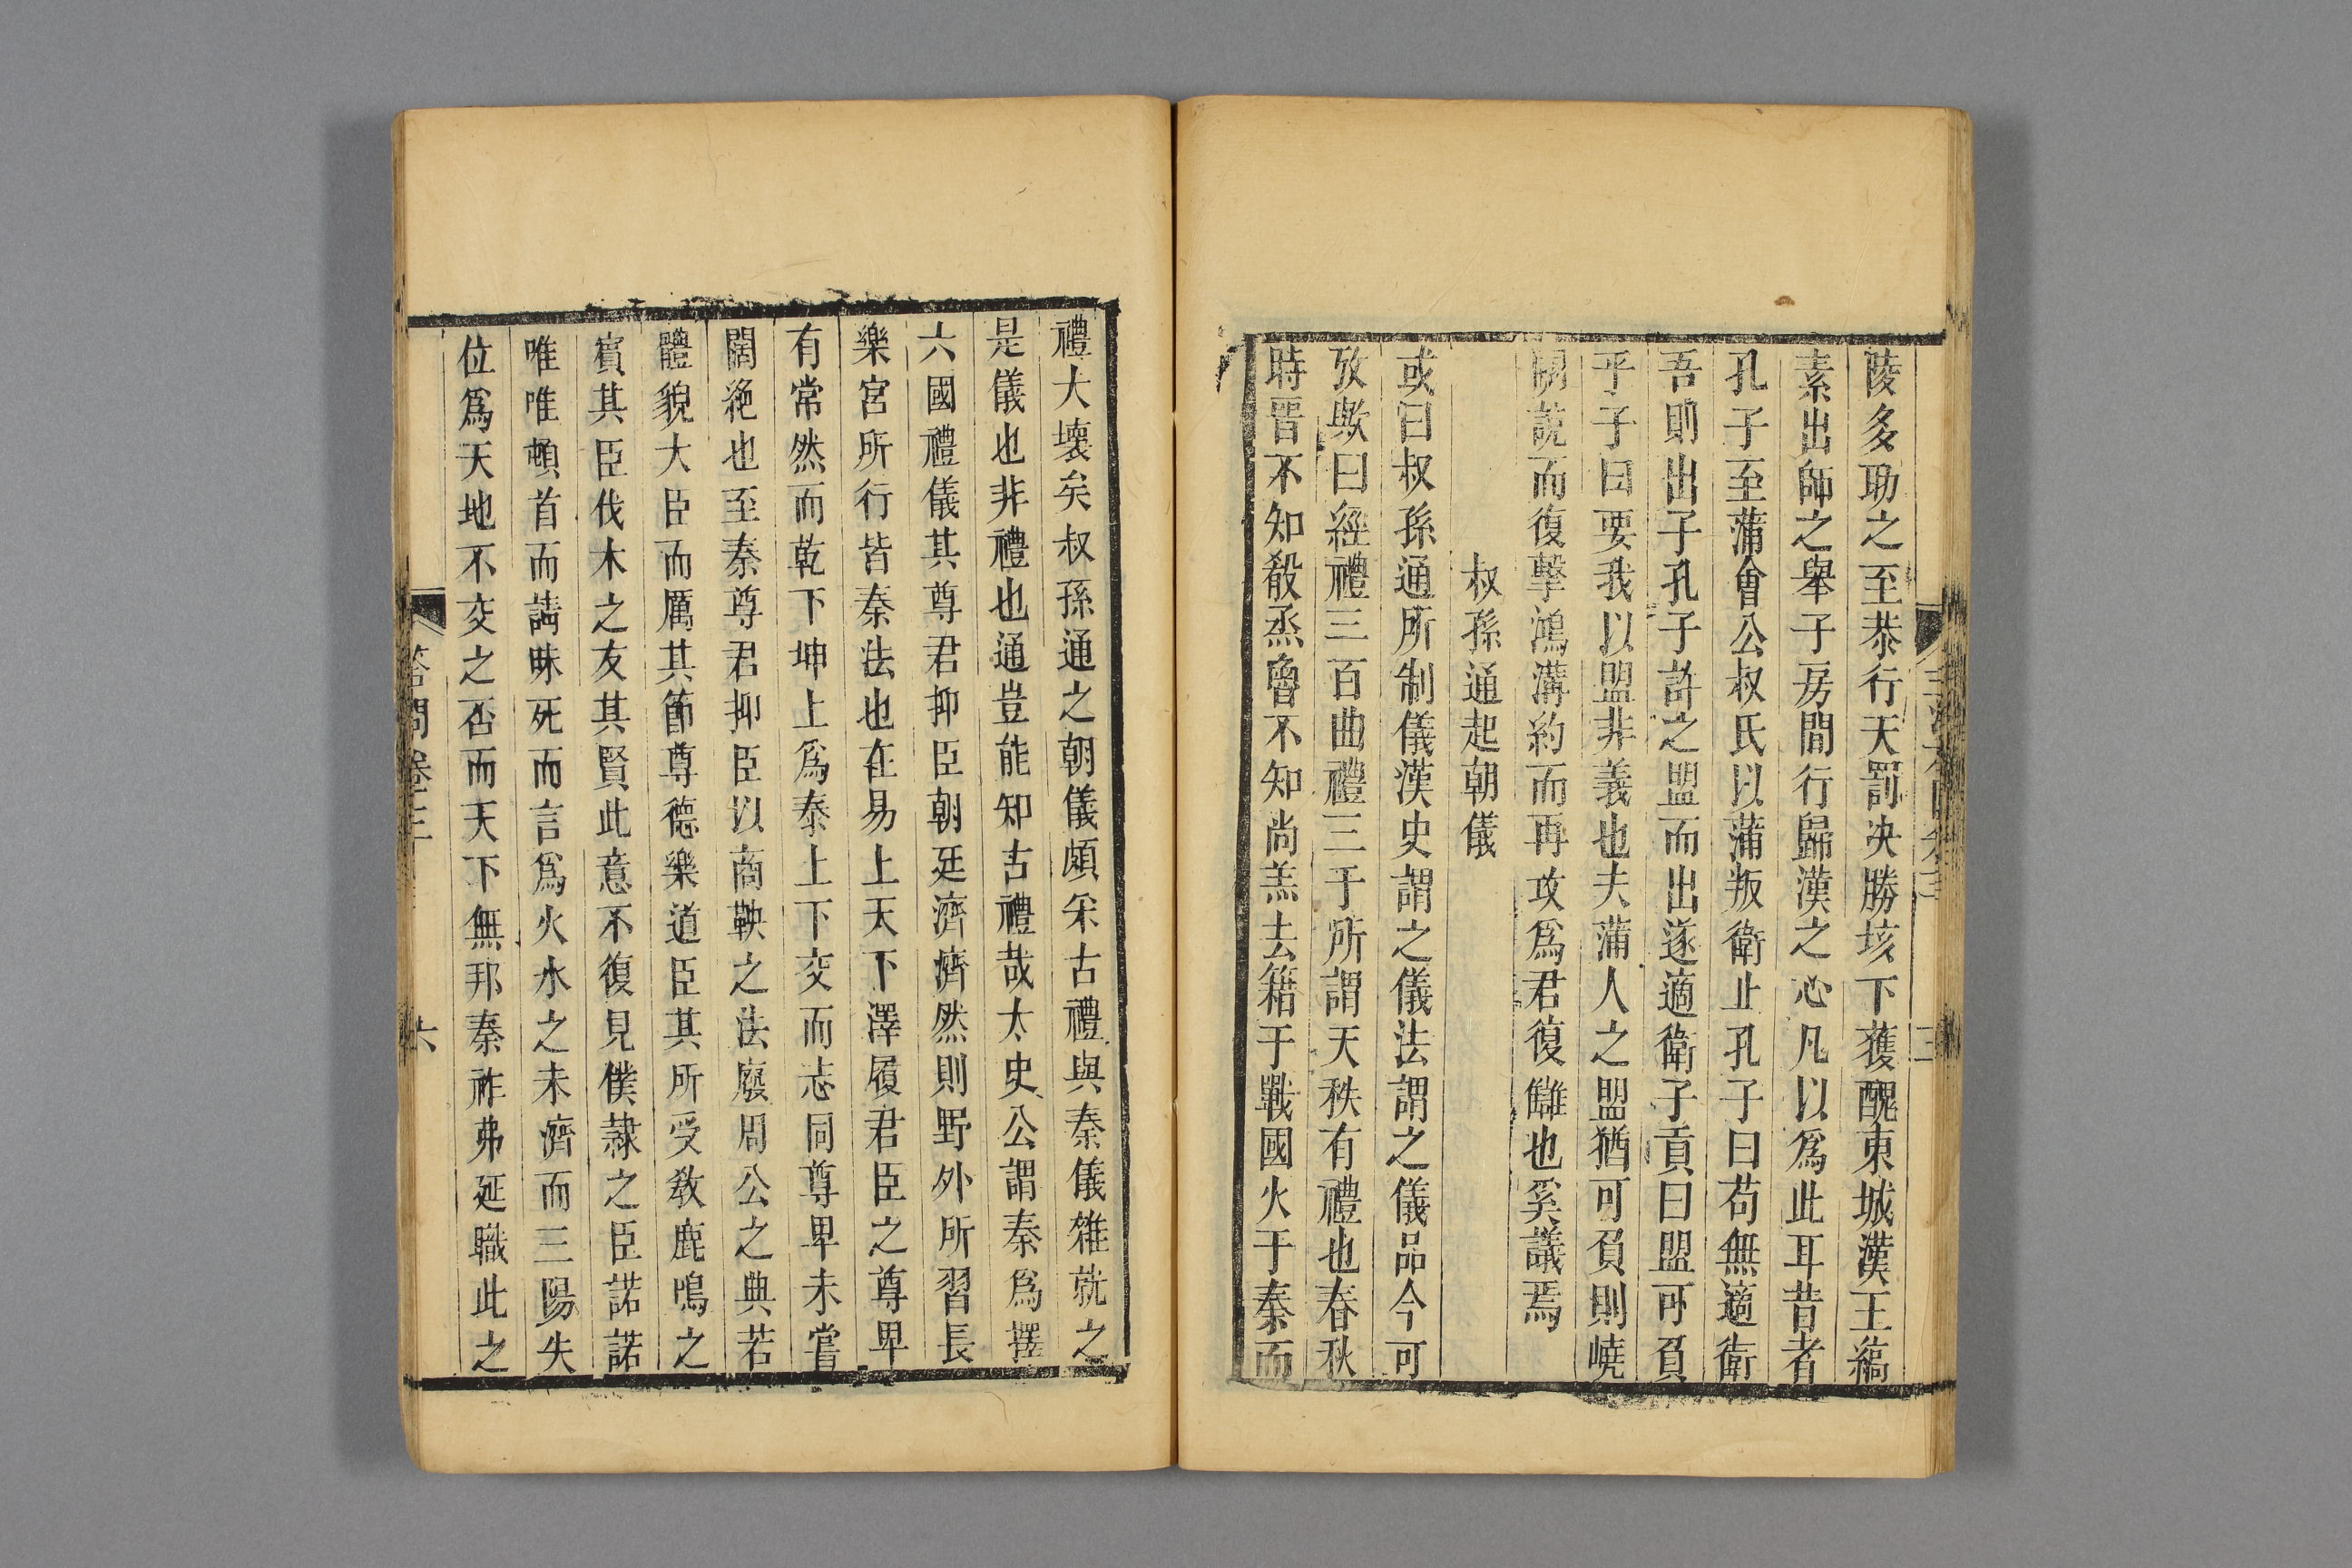 陵多助之至恭行天罰决勝垓下獲醜東城漢王縞
素出師之舉子房間行歸漢之心凡以爲此耳昔者
孔子至蒲會公叔氏以蒲叛衛止孔子曰苟無適衛
吾則出子孔子許之盟而出遂適衛子貢曰盟可負
乎子曰要我以盟非義也夫蒲人之盟猶可負則嶢
關說而復擊鴻溝約而再攻爲君復讎也奚議焉
叔孫通起朝儀
或曰叔孫通所制儀漢史謂之儀法謂之儀品今可
攷歟曰經禮三百曲禮三千所謂天秩有禮也春秋
時晋不知殽烝魯不知尚羔去籍于戰國火于秦而
禮大壞矣叔孫通之朝儀頗采古禮與秦儀雜就之
是儀也非禮也通豈能知古禮哉太史公謂秦爲擇
六國禮儀其尊君抑臣朝廷濟濟然則野外所習長
樂宮所行皆秦法也在易上天下澤履君臣之尊卑
有常然而乾下坤上爲泰上下交而志同尊卑未嘗
闊絶也至秦尊君抑臣以商鞅之法廢周公之典若
體貌大臣而厲其節尊德樂道臣其所受敎鹿鳴之
賓其臣伐木之友其賢此意不復見僕隷之臣諾諾
唯唯頓首而請昧死而言爲火水之未濟而三陽失
位爲天地不交之否而天下無邦秦祚弗延職此之
答問卷三
六